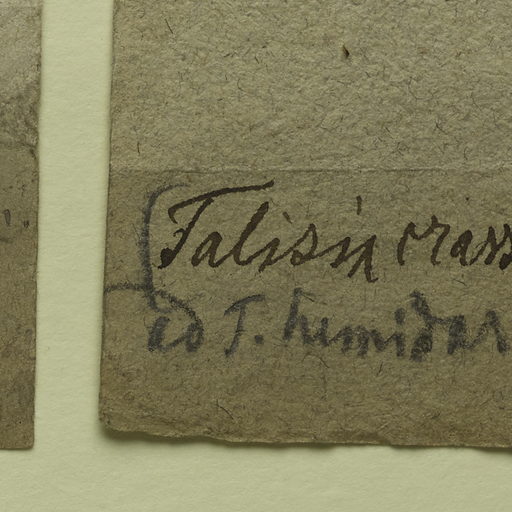 Talisia crass
ad T. hemidas